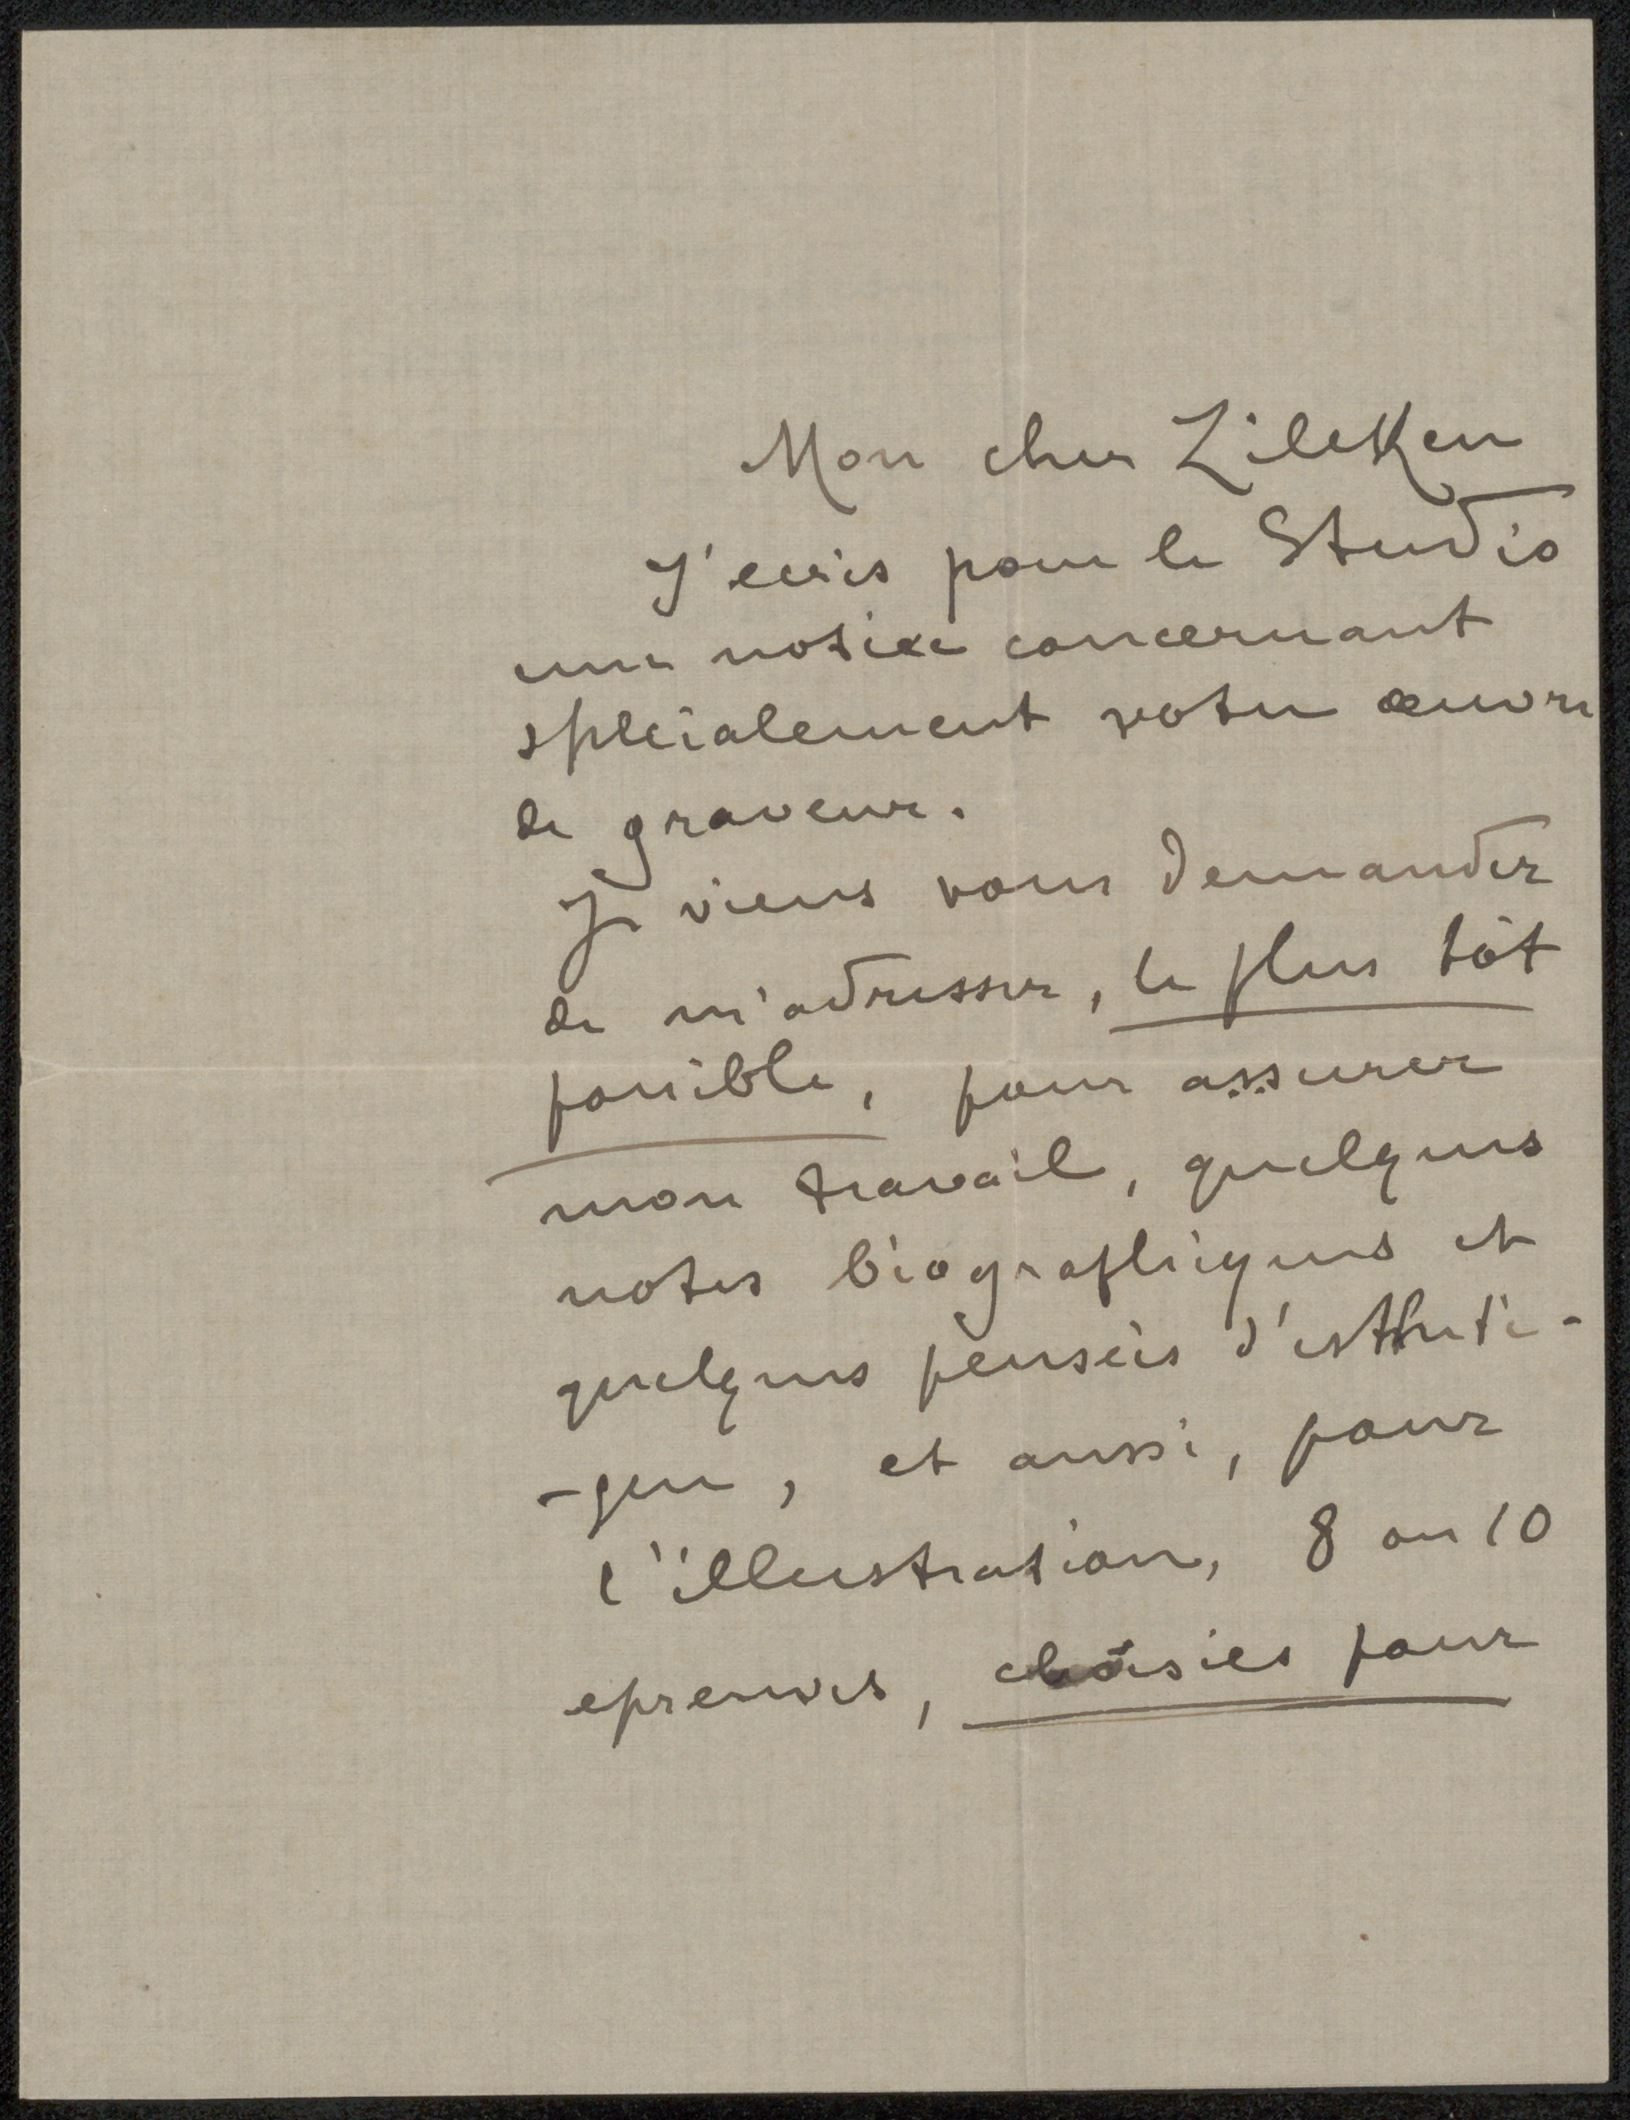 Mon cher Zilcken
J'ecris pour le Studio
une notice concernant
spécialement votre œuvre
de graveur.
Je viens vous demander
de m'adresser, le plus tôt
possible, pour assurer
mon travail, quelques
notes biographiques et
quelques pensées d'estheti-
-que, et aussi, pour
l'illustration, 8 ou 10
epreuves, choisies pour